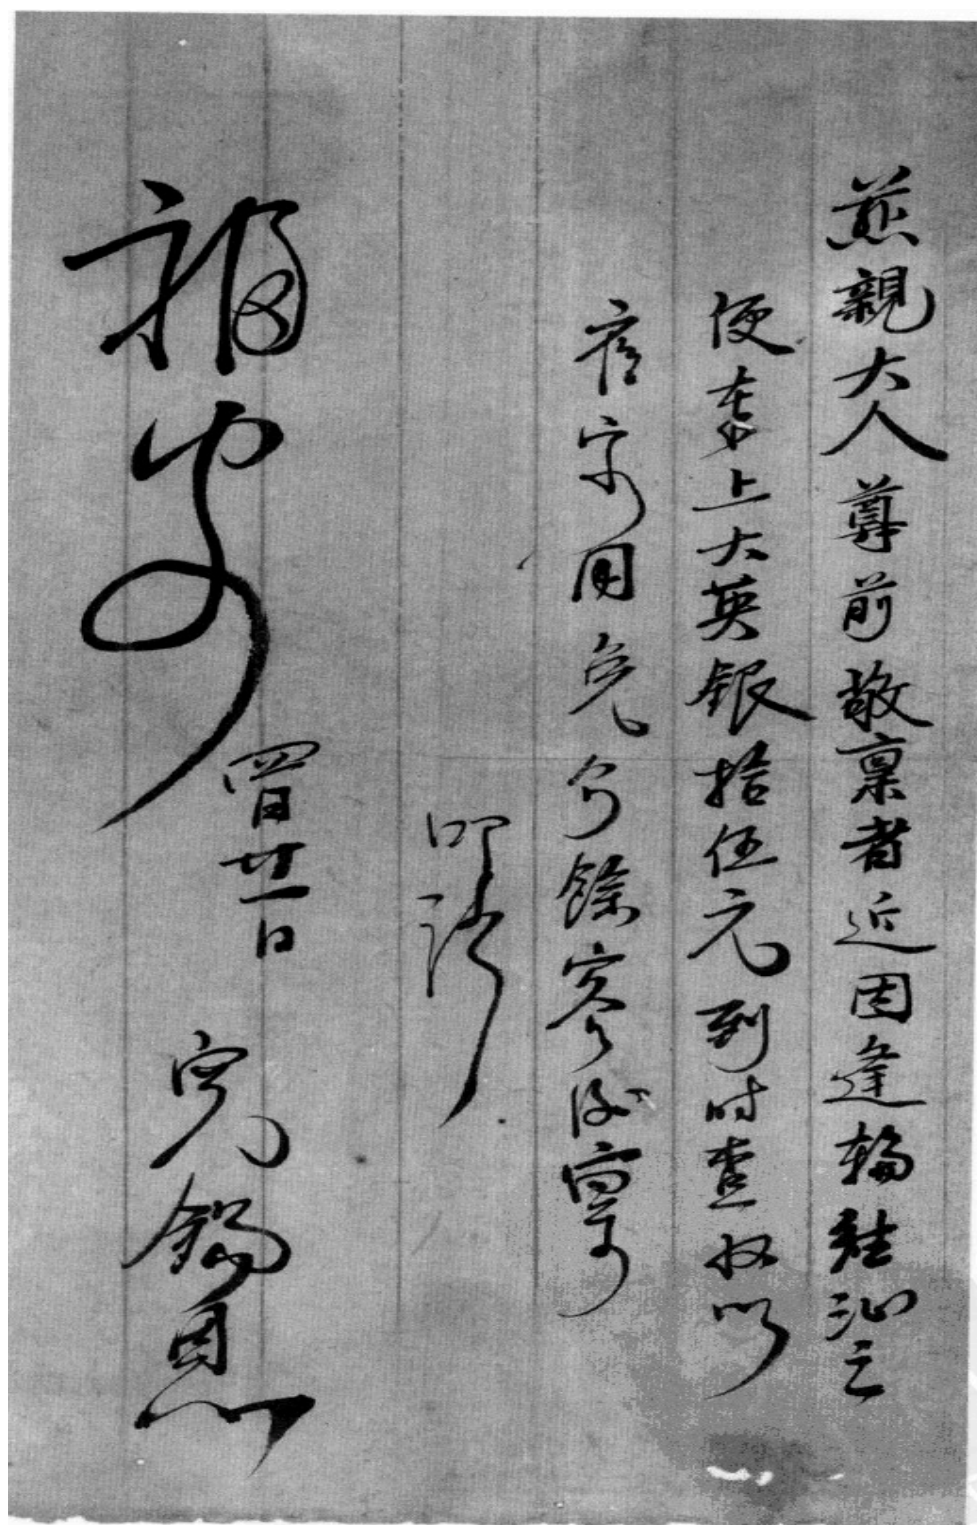 慈親大人尊前敬稟者近因逢輪駐汕之
便奉上大英銀拾伍元到时查收以
應家用免介餘容后寄
叩請
福安
四月廿一日 兒錫恩